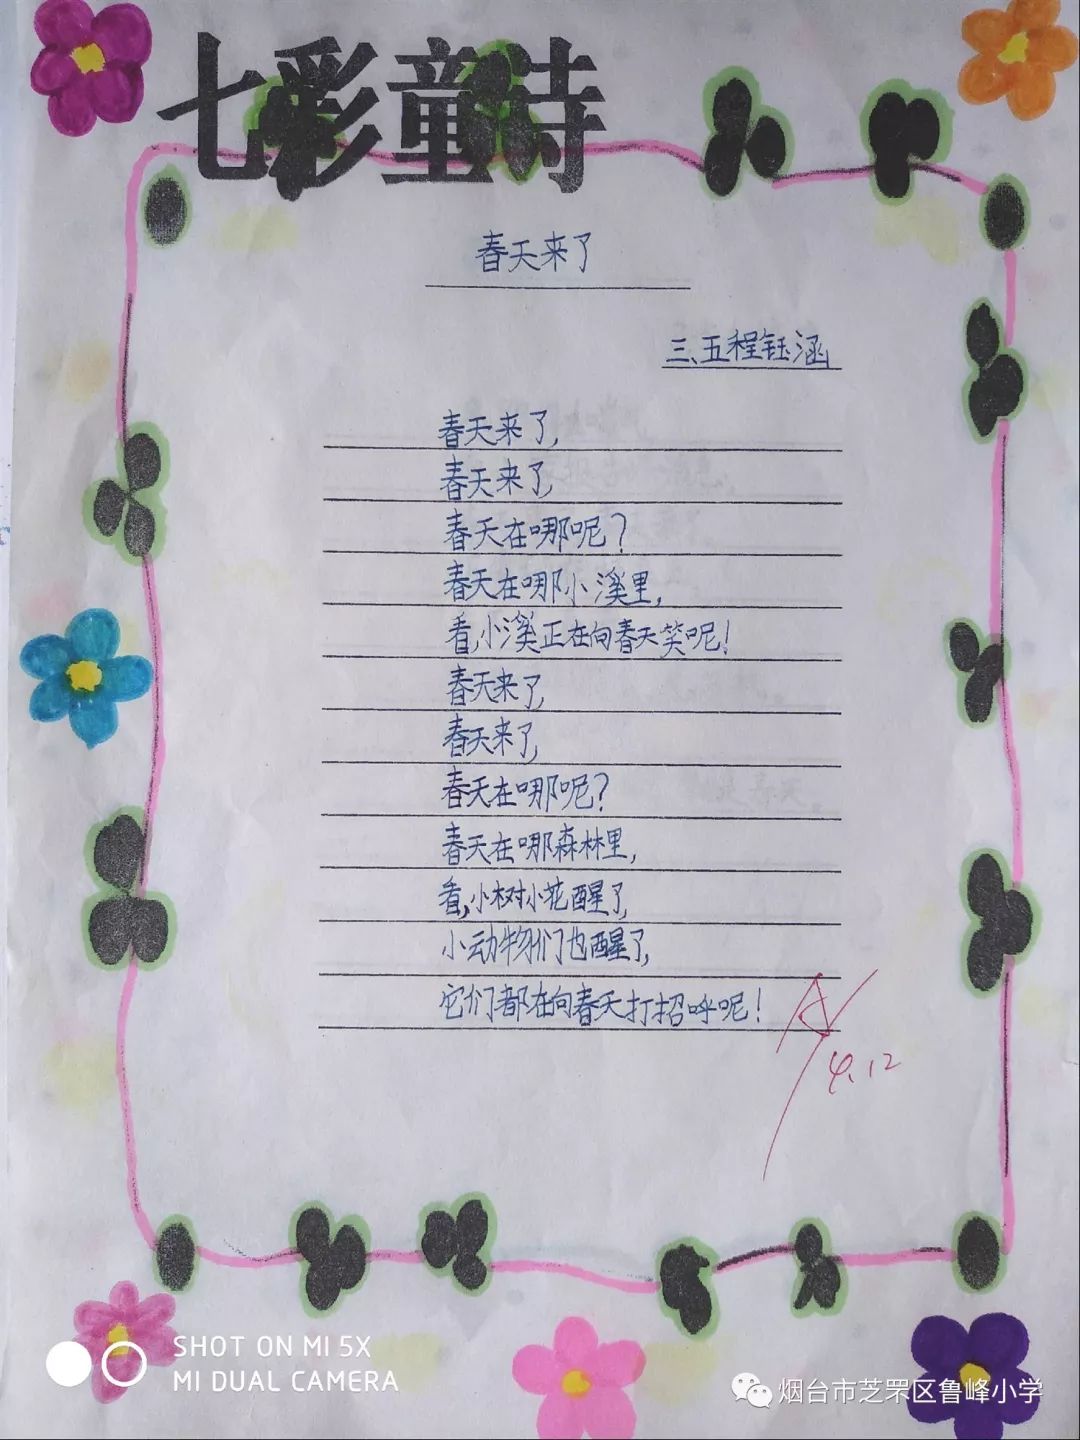 七彩童诗
春天来了
三、五程钰涵
春天来了,
春天来了,
春天在哪呢?
春天在哪小溪里,
看,小溪正在向春天笑呢!
春天来了,
春天来了,
春天在哪呢?
春天在哪森林里,
看,小树小花醒了,
小动物们也醒了,
它们都在向春天打招呼呢!
A
4.12
SHOT ON MI 5X
MI DUAL CAMERA
烟台市芝罘区鲁峰小学